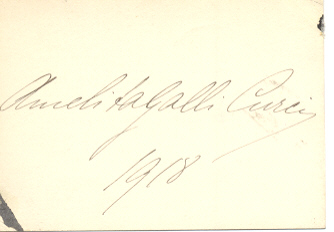 Amelita Galli Curci
1918